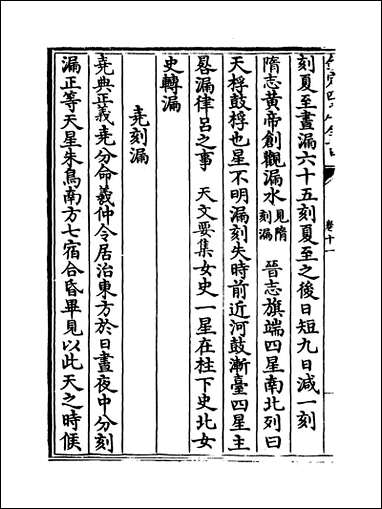 刻夏至晝漏六十五刻夏至之後日短九日減一刻
隋志黄帝創觀漏水見隋刻漏 晉志旗端四星南北列曰
天桴鼓桴也星不明漏刻失時前近河鼓漸臺四星主
晷漏律吕之事 天文要集女史一星在柱下史北女
史轉漏
堯刻漏
堯典正義堯分命羲仲令居治東方於日晝夜中分刻
漏正等天星朱鳥南方七宿合昏畢見以此天之時候
卷十一